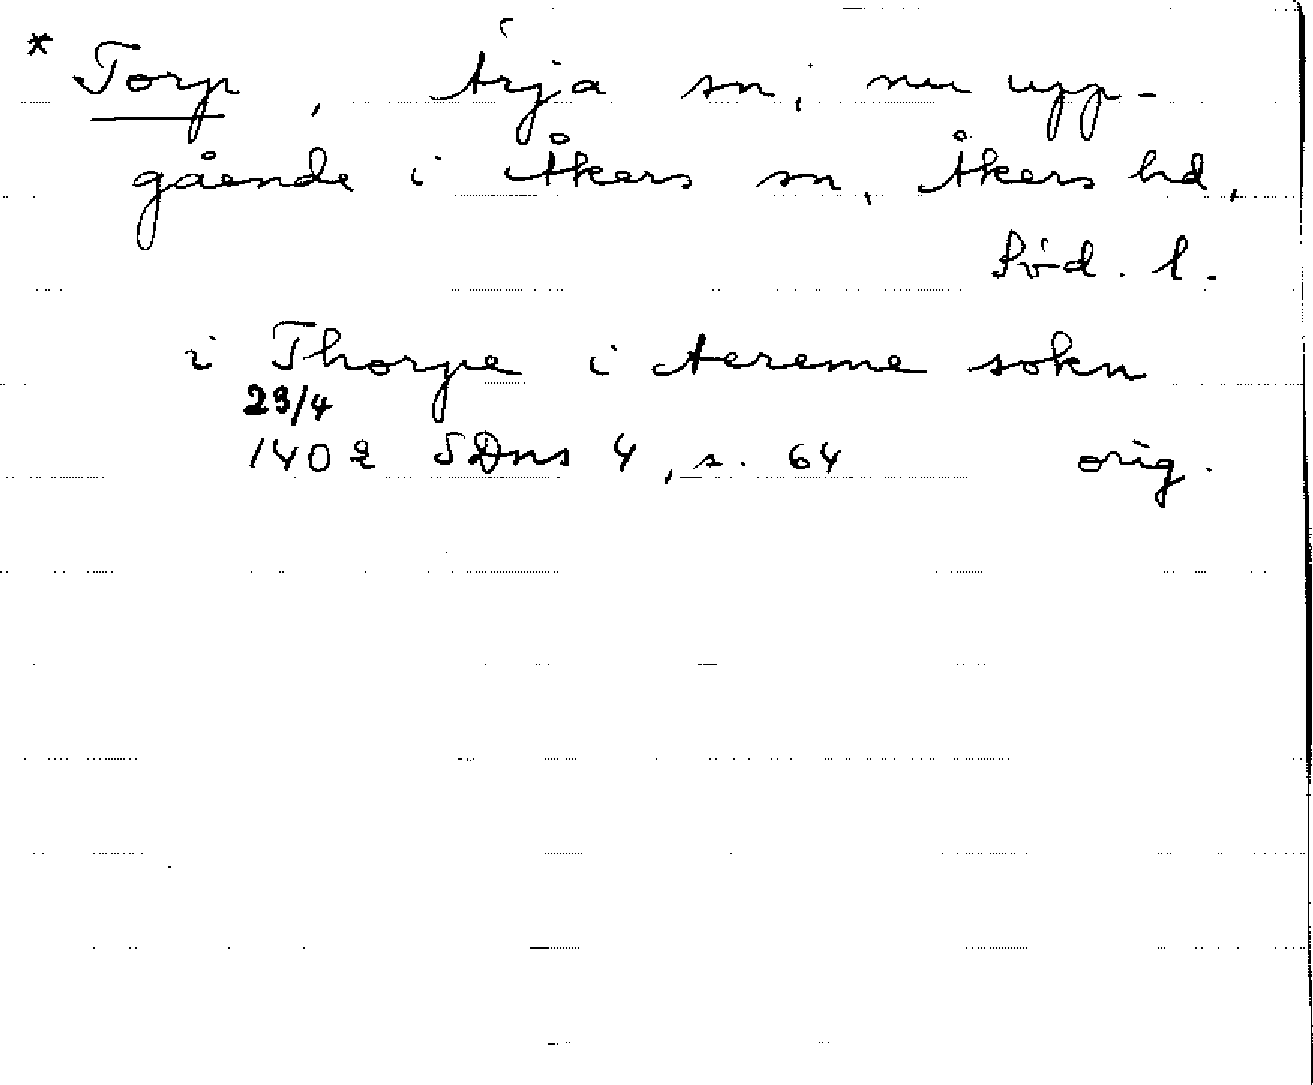 * Torp, Ärja sn, nu upp-
gående i Åkers sn, Åkers hd,
Söd. l.
i Thorpe i Aereme sokn
23/4
1402 SDns 4, s. 64 orig.